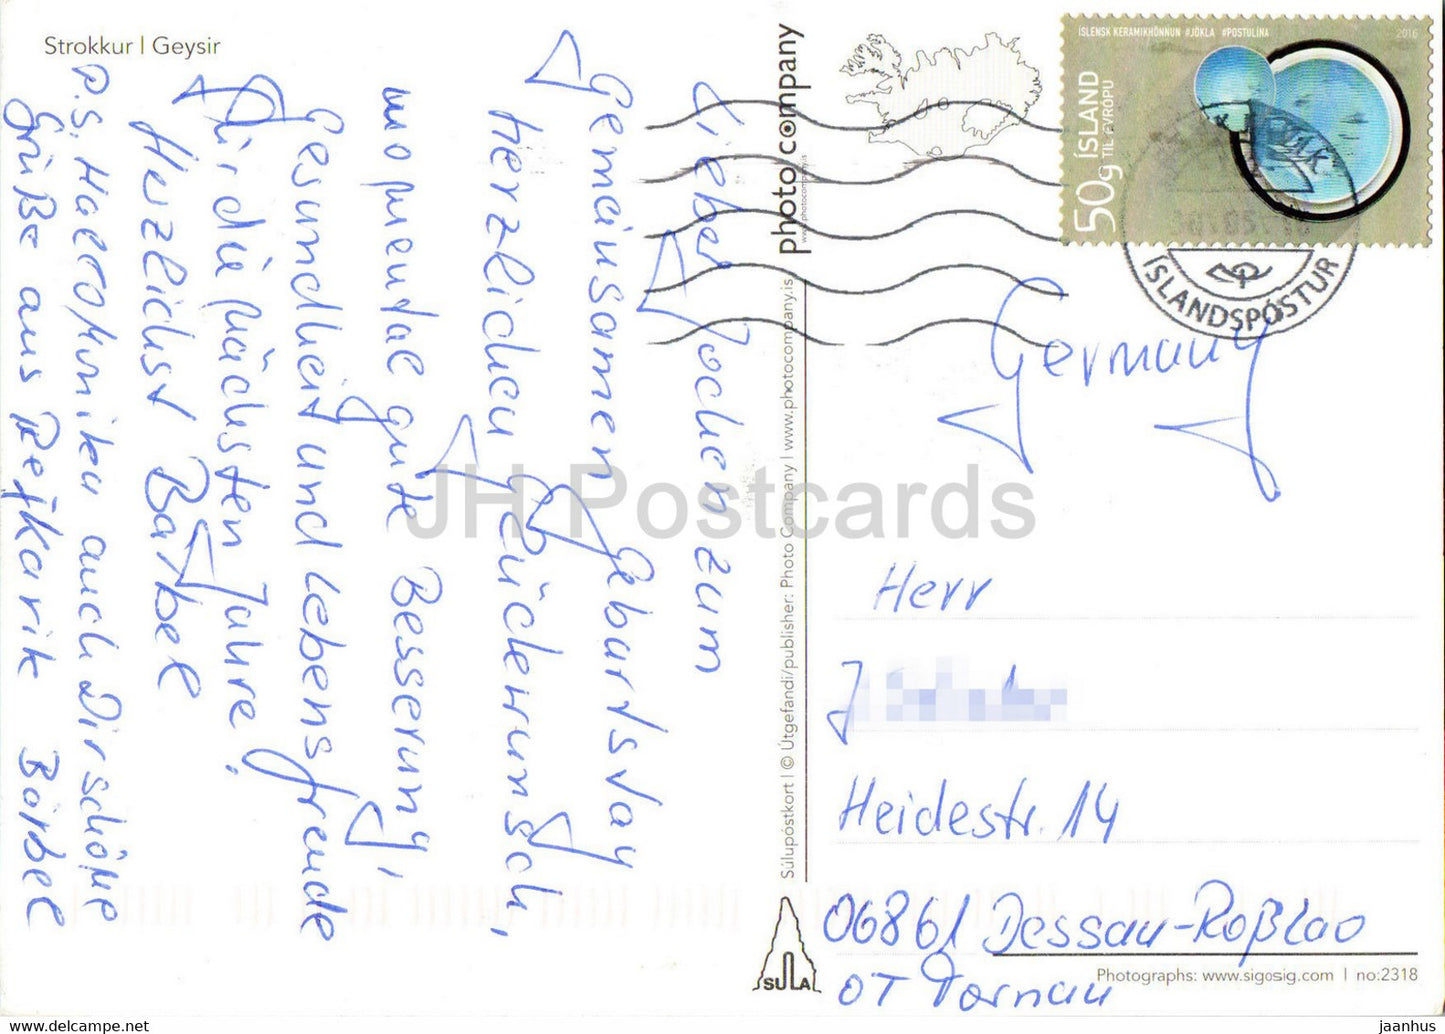 Strokkur | Geysir
Lieber Jochen zum
Gemeinsamen Geburtstag
herzlichen Glückwunsch,
momental gute Besserung,
Gesundheit und Lebensfreude
für die nächsten Jahre!
Herzlichst Bärbel
P.S. Haermika auch Dir schöne
Grüße aus Rejkavik Bärbel
photo company
www.photocompany.is
Súlupóstkort | © Útgefandi/publisher: Photo Company | www.photocompany.is
ÍSLENSK KERAMIKHÖNNUN #JÖKLA #POSTULÍNA
2016
ÍSLAND
50g TIL EVRÓPU
ÍSLANDSPÓSTUR
Germany
Herr
J
Heidestr. 14
06861 Dessau-Roßlau
OT Tornau
SULA
Photographs: www.sigosig.com | no:2318
JH Postcards
jaanhus
https://www.delcampe.net